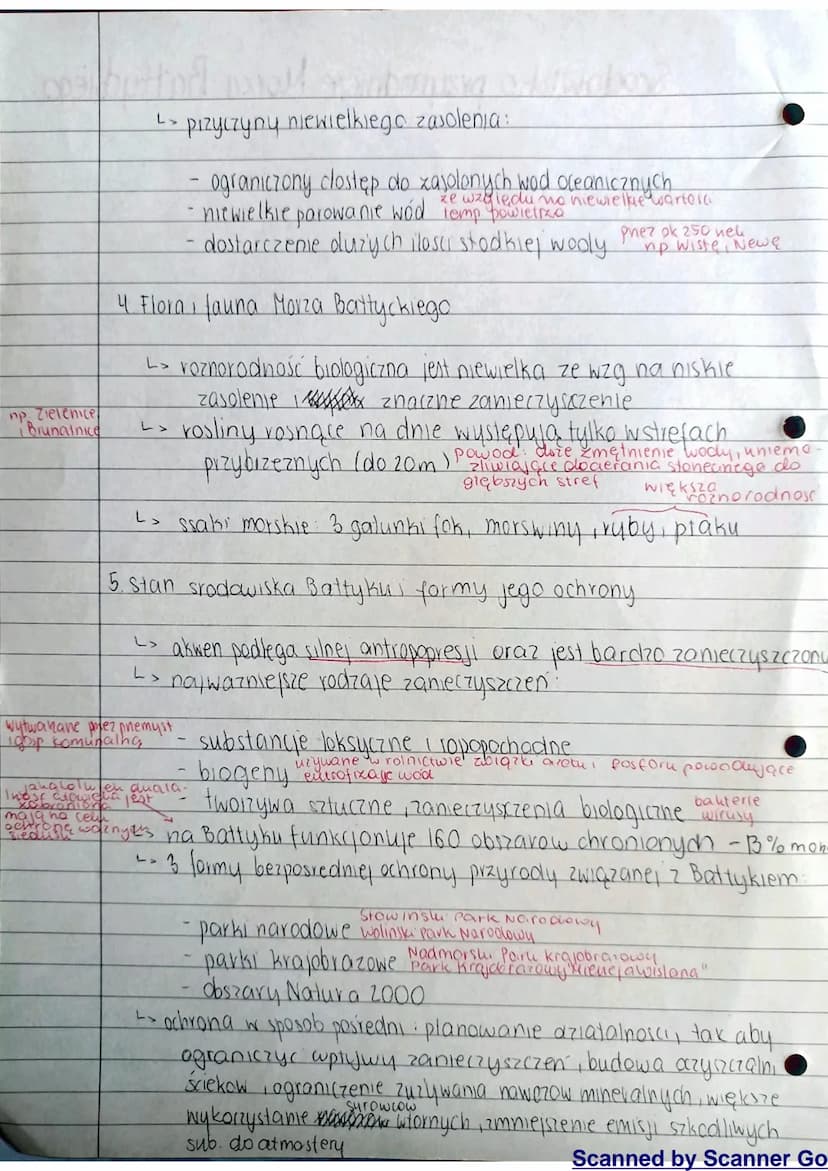 ↳ przyczyny niewielkiego zasolenia:
- ograniczony dostęp do zasolonych wod oceanicznych
- niewielkie parowanie wód ze względu na niewielkie wartości
temp powietrza
- dostarczenie dużych ilosci słodkiej wody przez ok 250 rzek
np Wisłę i Newę
4. Flora i fauna Morza Bałtyckiego
↳ roznorodność biologiczna jest niewielka ze wzg na niskie
zasolenie i znaczne zanieczyszczenie
np. zielenice
i Brunatnice
↳ rosliny rosnące na dnie występują tylko w strefach
przybrzeznych (do 20m) powod: duże zmętnienie wody, uniemo-
żliwiające docierania słonecznego do
głębszych stref
większa
różnorodnosc
↳ ssaki morskie: 3 gatunki fok, morswiny, ryby i ptaki
5. Stan srodowiska Bałtyku i formy jego ochrony
↳ akwen podlega silnej antropopresji oraz jest bardzo zanieczyszczony
↳ najwazniejsze rodzaje zanieczyszczeń:
wytwarzane przez przemysł
i gosp komunalną
- substancje toksyczne i ropopochodne
- biogeny używane w rolnictwie związki azotu i fosforu powodujące
eutrofizację wód
- tworzywa sztuczne, zanieczyszczenia biologiczne bakterie
wirusy
jest
mają na celu
ochronę waznych
siedlisk
↳ na Bałtyku funkcjonuje 160 obszarow chronionych - 13%
↳ 3 formy bezposredniej ochrony przyrody związanej z Bałtykiem:
- parki narodowe Słowinski Park Narodowy
Wolinski Park Narodowy
- parki krajobrazowe Nadmorski Park krajobrazowy
Park Krajobrazowy "Mierzeja Wislana"
- obszary Natura 2000
↳ ochrona w sposob posredni: planowanie działalnosci, tak aby
ograniczyc wpływy zanieczyszczeń, budowa oczyszczalni
ściekow, ograniczenie zużywania nawozow mineralnych, większe
surowcow
wykorzystanie wtornych, zmniejszenie emisji szkodliwych
sub. do atmosfery
Scanned by Scanner Go